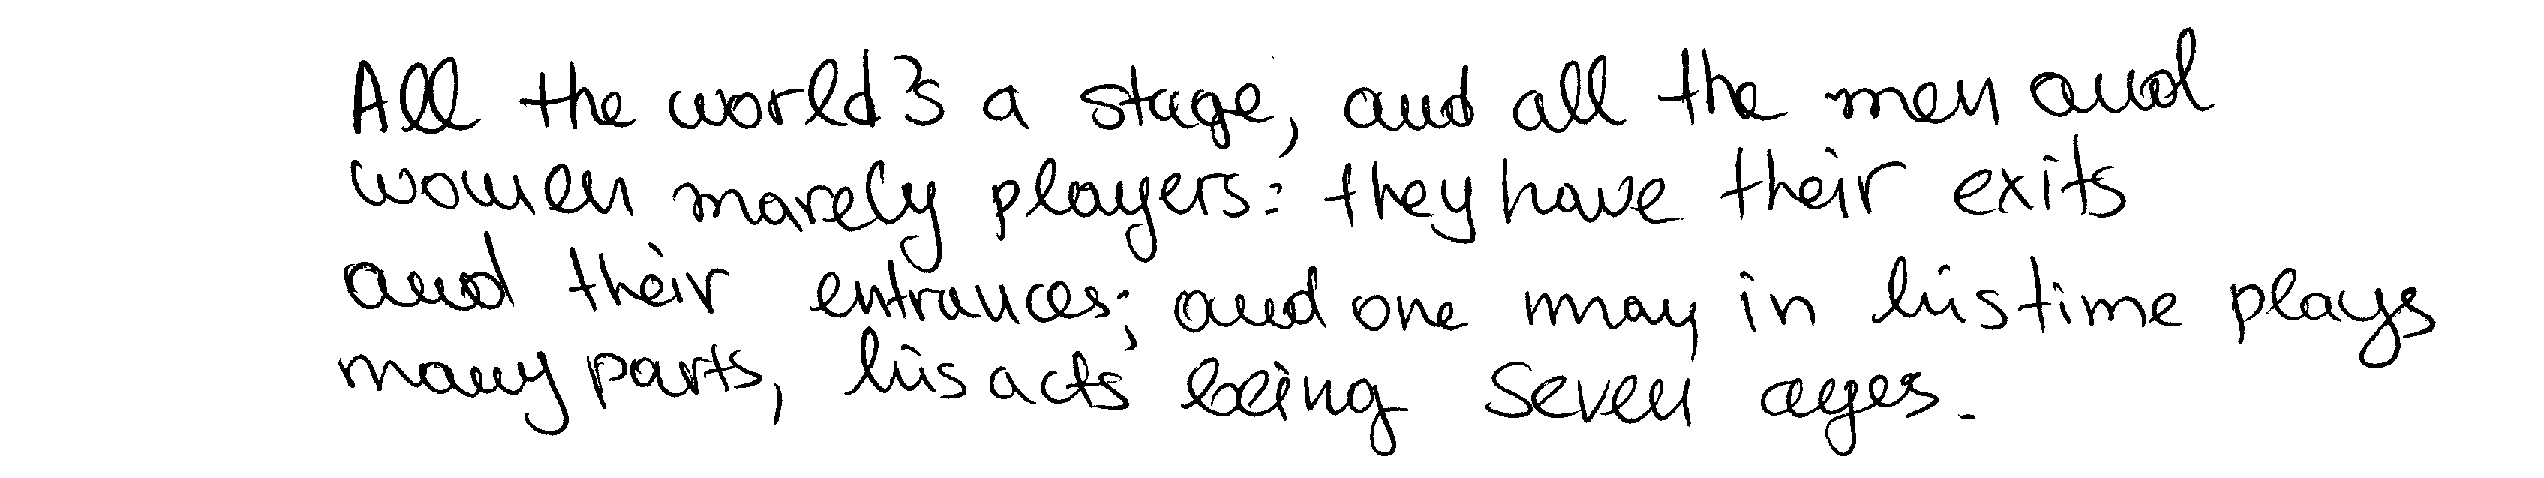 All the world's a stage, and all the men and
women marely players: they have their exits
and their entrances; and one may in his time plays
many parts, his acts being seven ages.